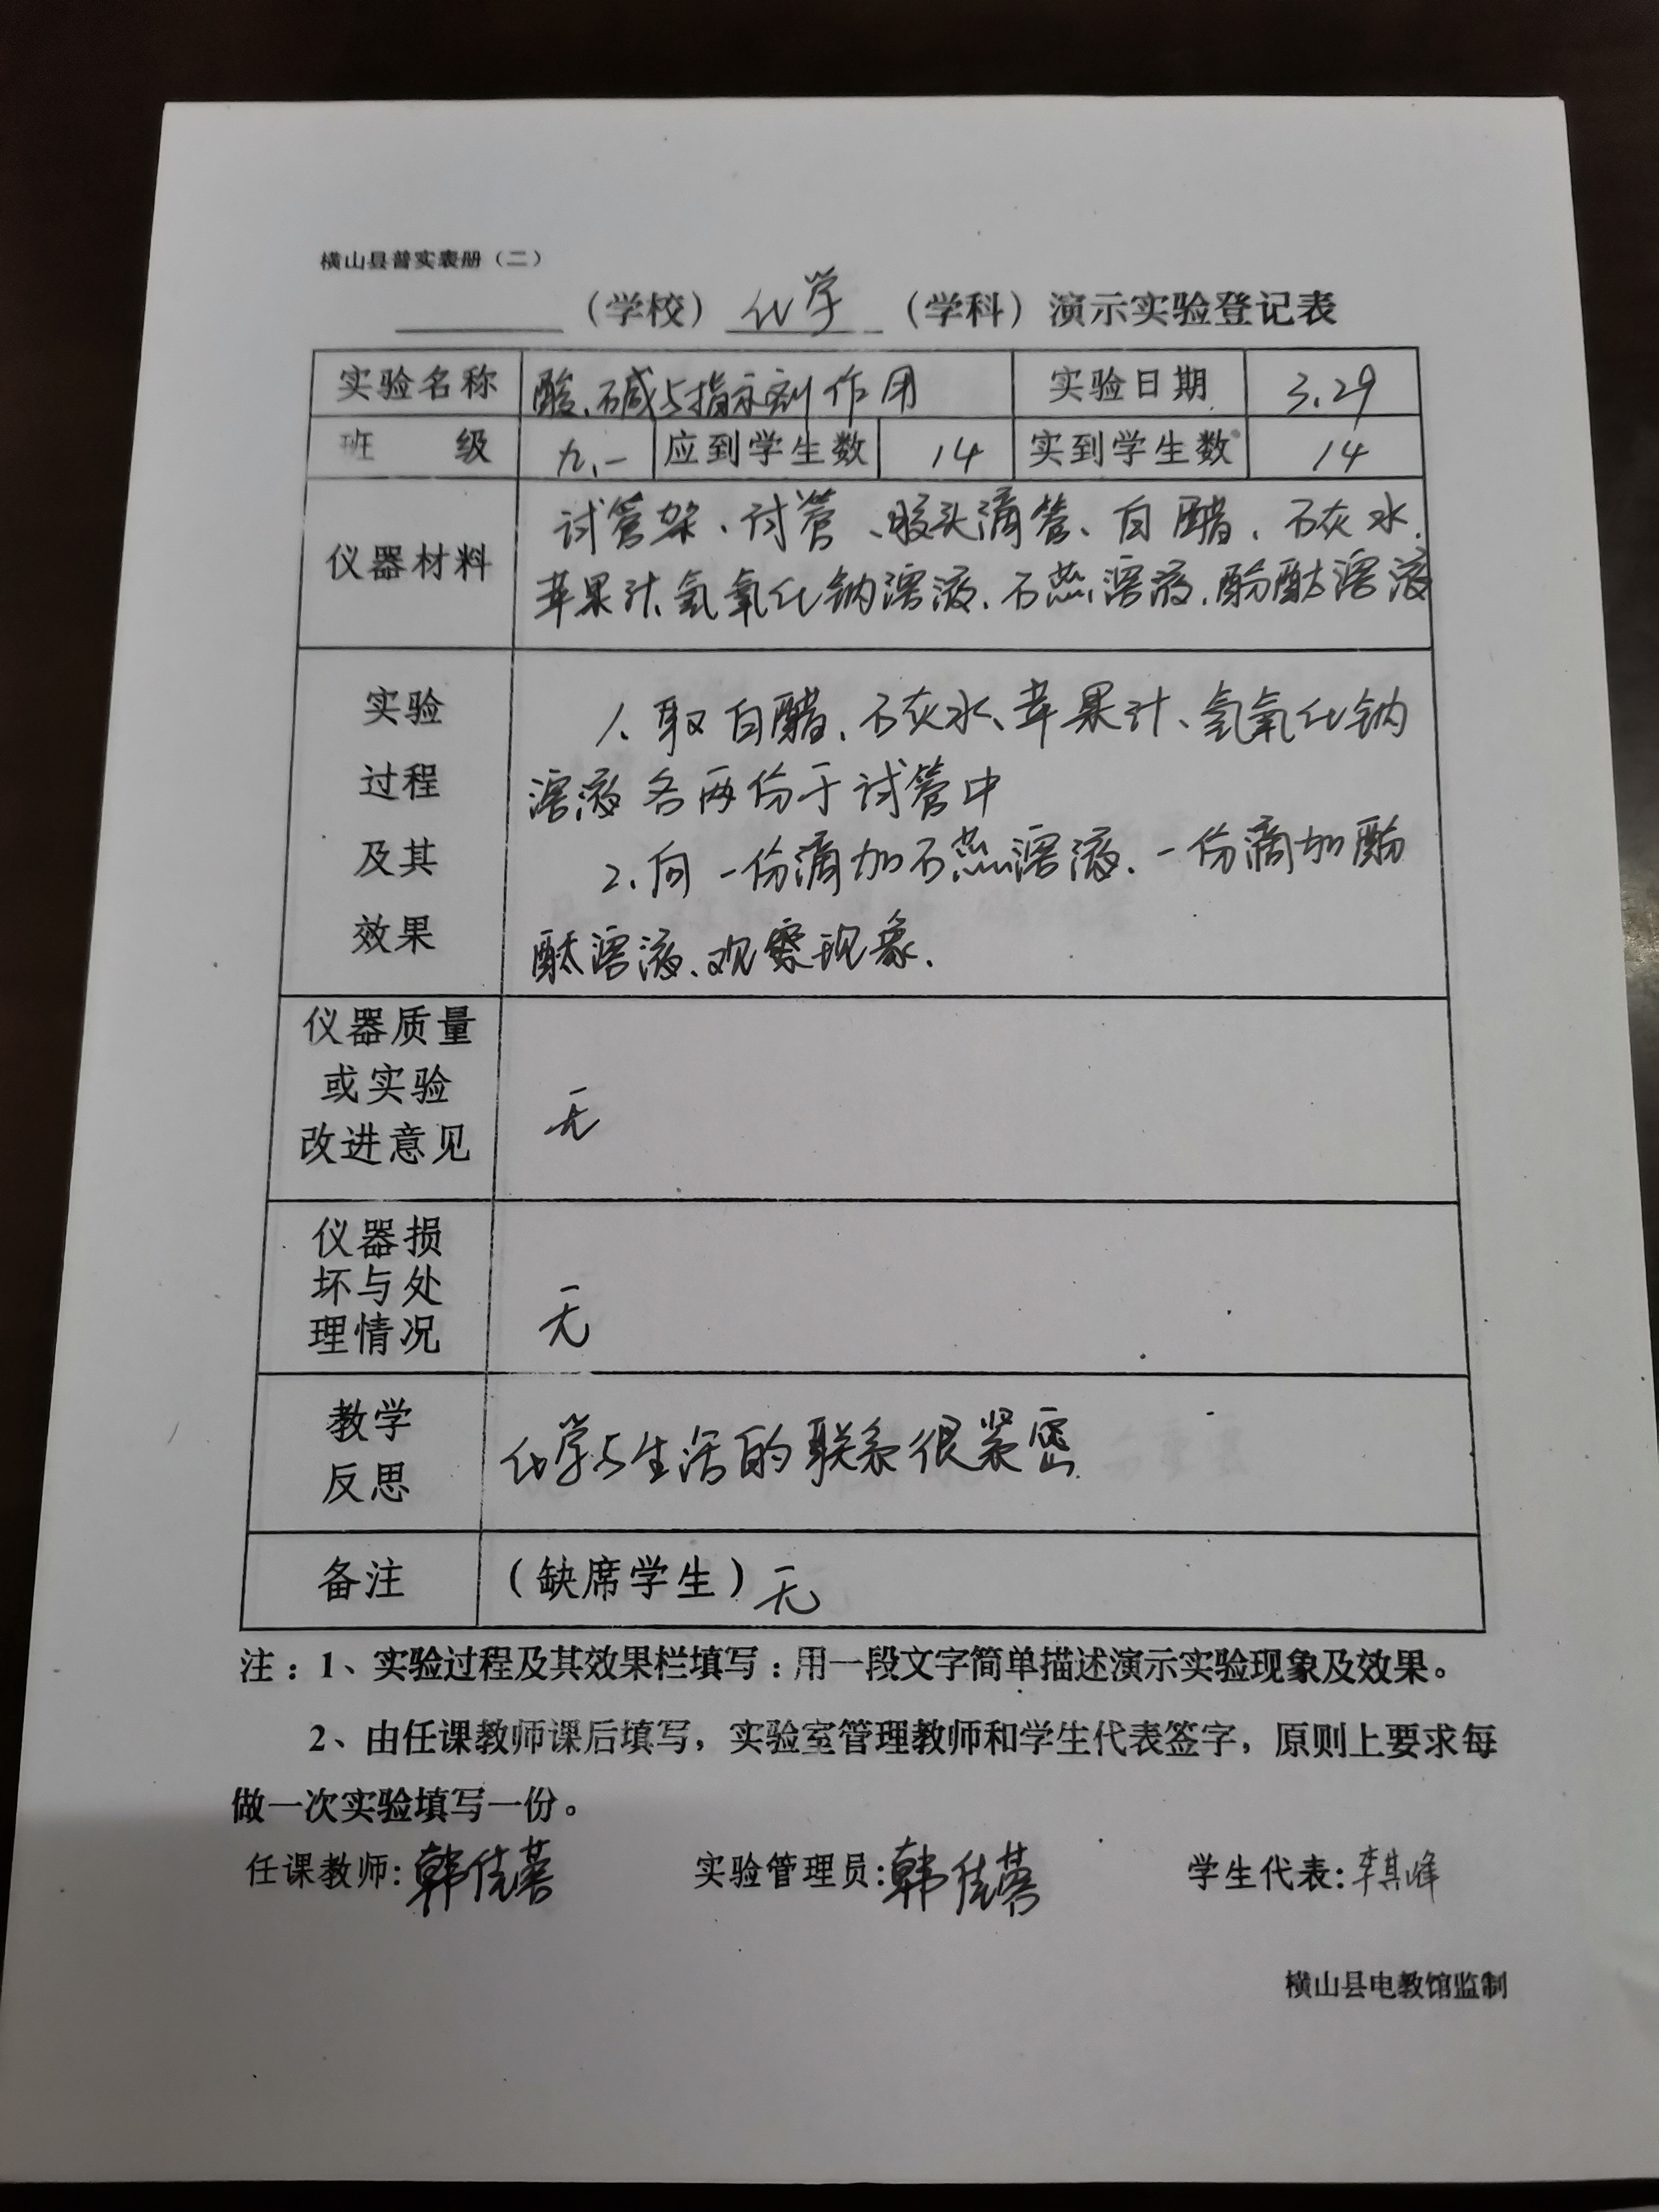 横山县普实表册（二）
（学校）化学（学科）演示实验登记表
实验名称 酸、碱与指示剂作用 实验日期 3.29
班 级 九、一 应到学生数 14 实到学生数 14
仪器材料
试管架、试管、胶头滴管、白醋、石灰水、
苹果汁、氢氧化钠溶液、石蕊溶液、酚酞溶液
实验
过程
及其
效果
1、取白醋、石灰水、苹果汁、氢氧化钠
溶液各两份于试管中
2、向一份滴加石蕊溶液、一份滴加酚
酞溶液、观察现象.
仪器质量
或实验
改进意见
无
仪器损
坏与处
理情况
无
教学
反思
化学与生活的联系很紧密
备注 （缺席学生）无
注：1、实验过程及其效果栏填写：用一段文字简单描述演示实验现象及效果。
2、由任课教师课后填写，实验室管理教师和学生代表签字，原则上要求每
做一次实验填写一份。
任课教师：韩佳蓉 实验管理员：韩佳蓉 学生代表：李其峰
横山县电教馆监制